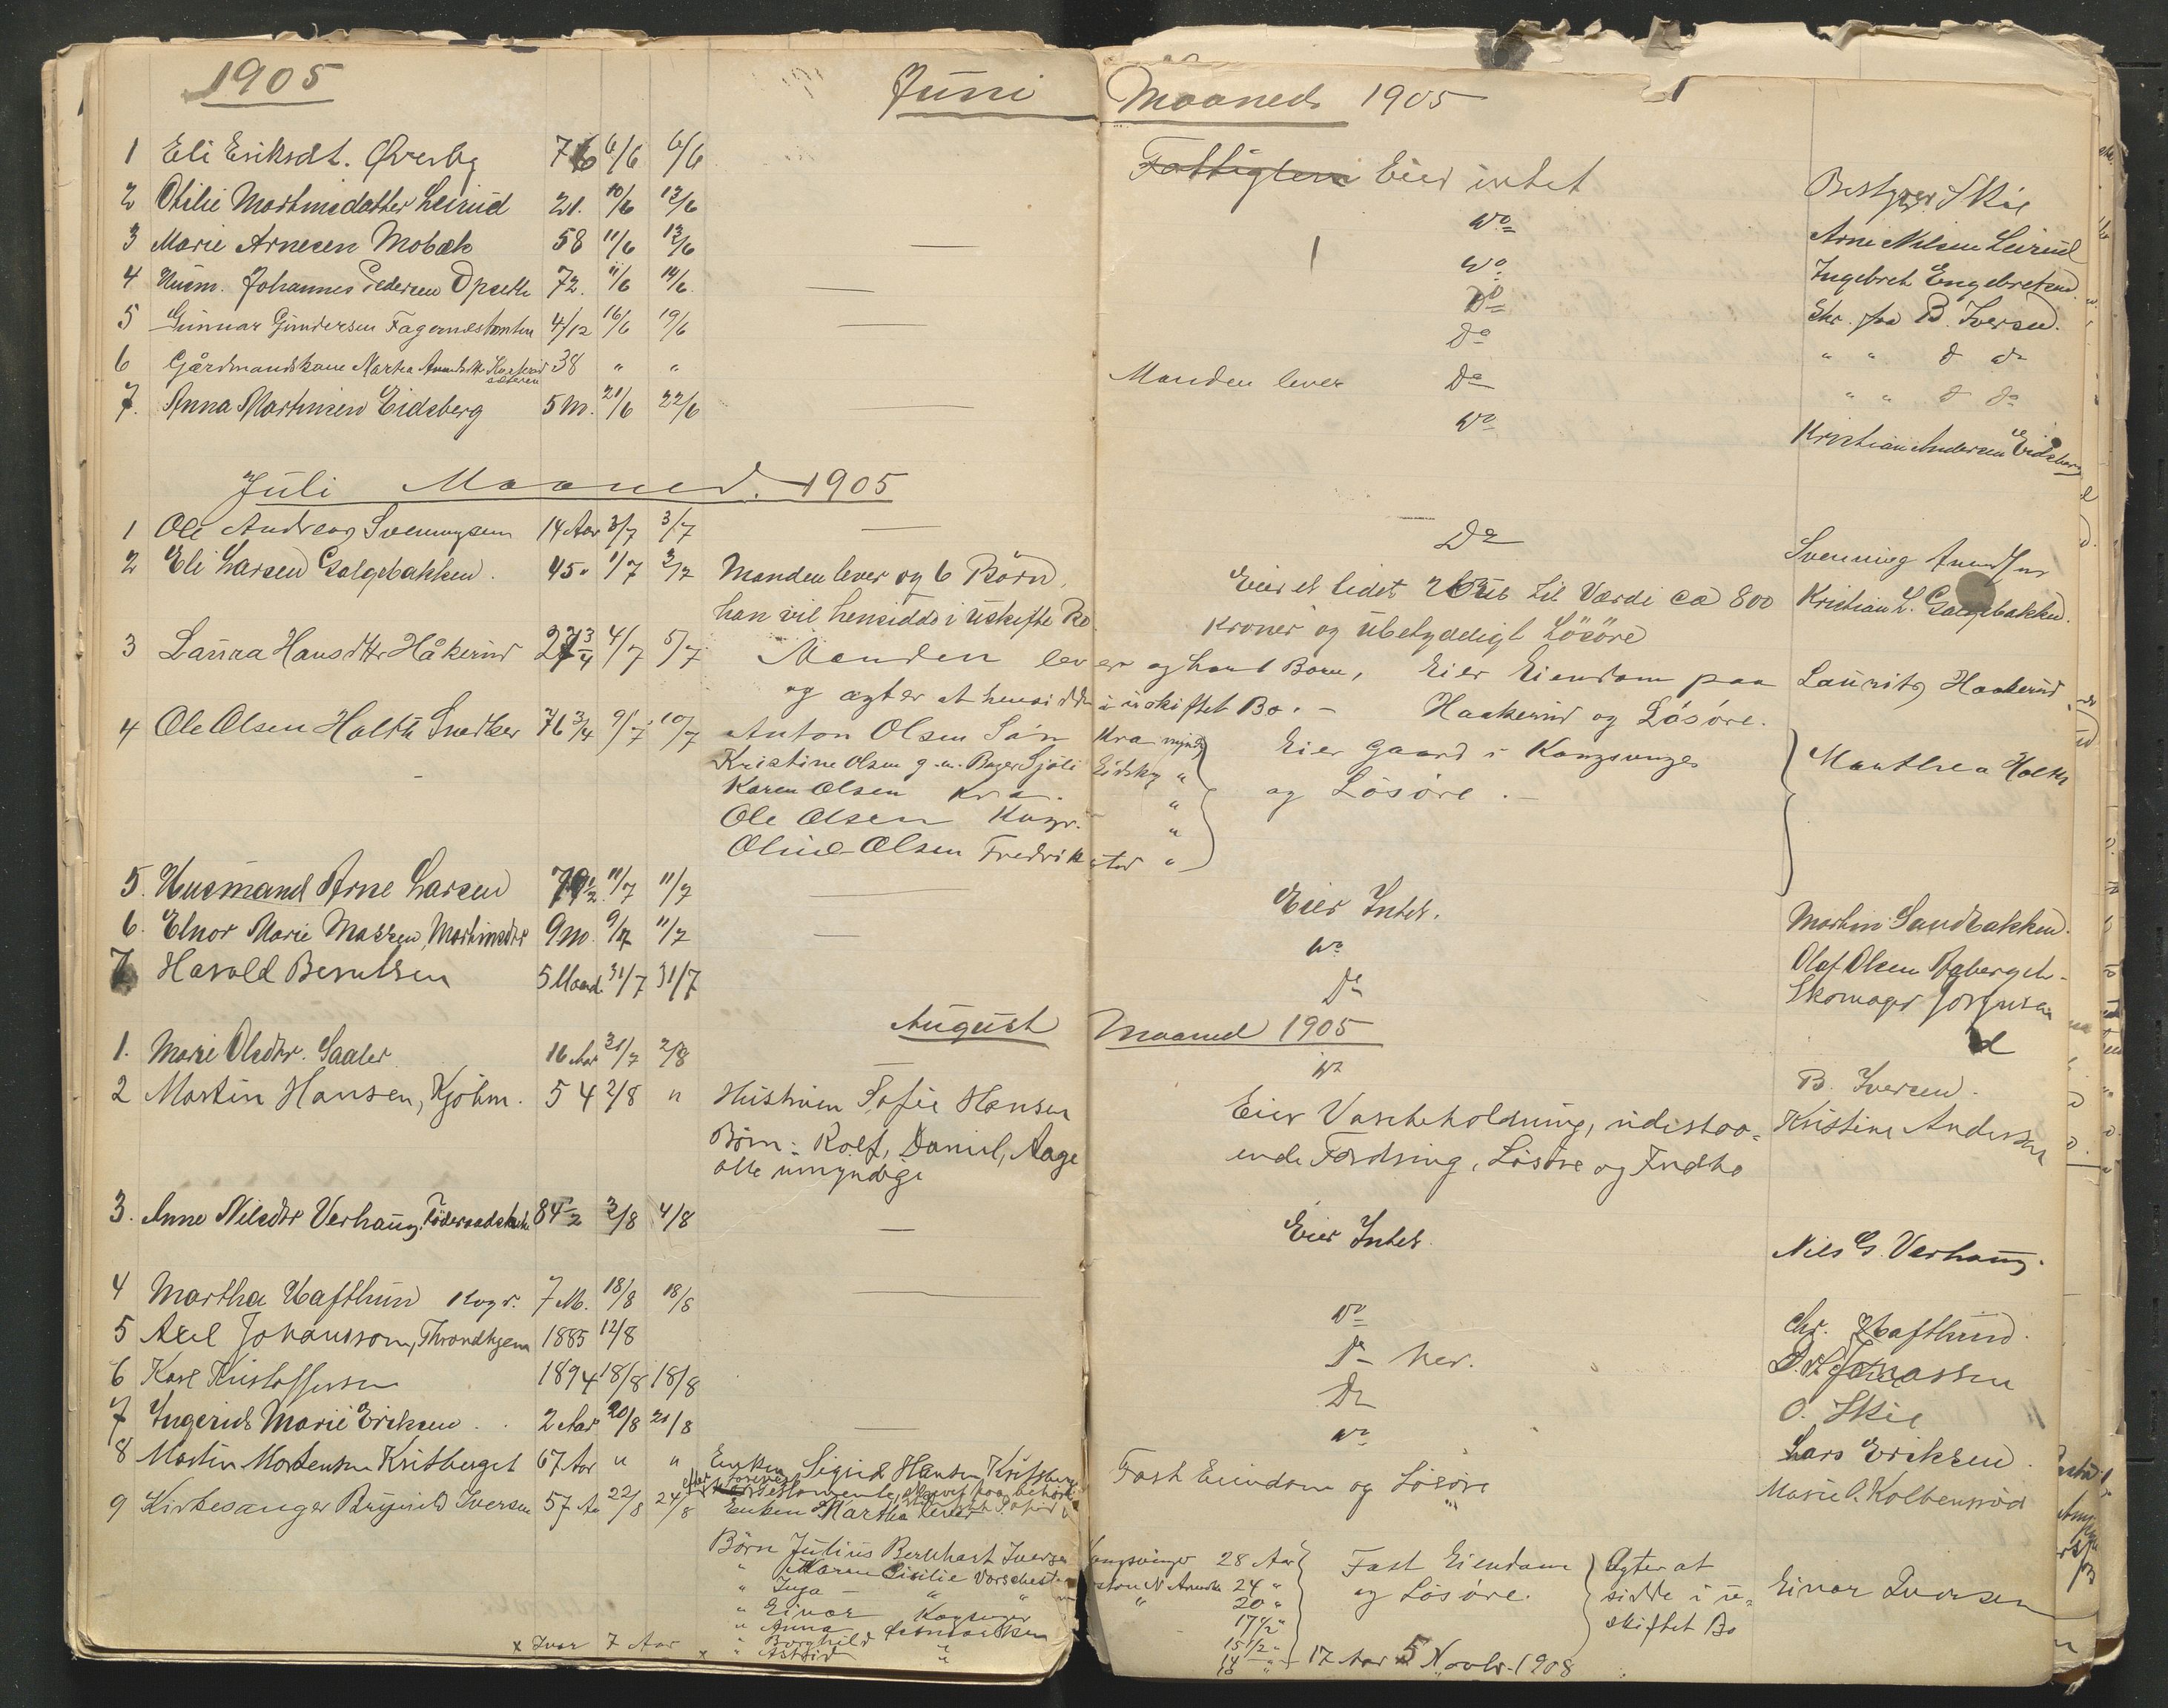 1905
Juni Maaned 1905
1 Eli Eriksdt. Øverby 76 6/6 6/6 Eier intet Bestyrer Skie
2 Otilie Martinsdatter Leirud 21. 10/6 13/6 Do Arne Nilsen Leirud
3 Marie Arnesen Mobæk 58 11/6 13/6 — Do Ingebret Engebretsen
4 Husm. Johannes Pedersen Opseth 72. 11/6 14/6 — Do Skr. fra B. Iversen.
5 Gunnar Gundersen Fagernestomten 4/12 16/6 19/6 — Do " " d do
6 Gårdmandskone Marthea 38 " " Manden lever Do " " d do
7. Anna Martinsen Eidsberg 5 M. 21/6 22/6 — Do Kristian Andersen Eidsberg
Juli Maaned. 1905
1 Ole Andreas Svenningsen 14 Aar 3/7 3/7 — Do Svenning
2 Eli Larsen Galgebakken. 45. 1/7 3/7 Manden lever og 6 Børn, Eier et lidet Brug til Værdi ca 800 Kristian L. Galgebakken.
han vil hensidde i uskifte Bo Kroner og ubetyddeligt Løsøre
3 Laura Hansdtr Håkerud 27 3/4 4/7 5/7 Manden lever og har 1 Barn, Eier Eiendom paa Laurits Haakerud
og agter at hensidde i uskiftet Bo. — Haakerud og Løsøre.
4 Ole Olsen Holth Snedker 76 3/4 9/7 10/7 Anton Olsen Søn Kra myndig Eier Gaard i Kongsvinger Manthea Holth
Kristine Olsen g. m. Bager Sjöli Eidskog " og Løsøre. —
Karen Olsen Kra. "
Ole Olsen Kogr. "
Oline Olsen Fredrikstad "
5. Husmand Arne Larsen 79 1/2 11/7 11/7 — Eier Intet. Martin Sandbakken.
6. Elnor Marie Massen, Martinsdtr 9 m. 9/7 11/7 — Do Olaf Olsen
7 Harald Berntsen 5 Maand. 31/7 31/7 Do Skomager Jørgensen
August Maaned 1905
1. Marie Olsdtr. Saater 16 Aar 31/7 2/8 — Do B. Iversen.
2 Martin Hansen, Kjøbm. 54 2/8 " Hustruen Sofie Hansen Eier Varebeholdning, udestaa- Kristine Andersen
Børn: Rolf, Daniel, Aage ende Fordring, Løsøre og Indbo
alle umyndige
3. Anne Nilsdtr Verhaug, Föderaadskone 84 1/2 3/8 4/8 — Eier Intet. Nils G. Verhaug.
4 Martha Hafthun Kogr. 7 M. 18/8 18/8 — Do Chr. Hafthund.
5 Axel Johansson, Throndhjem 1885 12/8 Do her. Jonassen
6 Karl Kristoffersen 1894 18/8 18/8 Do O. Skie
7 Ingerid Marie Eriksen 2 Aar 20/8 21/8 — Do Lars Eriksen.
8 Martin Mortensen Kritberget 67 Aar " " Enken Sigrid Hansen Kritsberg Fast Eiendom og Løsøre Marie O. Kolbensrød
9 Kirkesanger Brynild Iversen 57 Aa 22/8 24/8 Enken Martha lever
Børn Julius Bernhart Iversen Kongsvinger 28 Aar Fast Eiendom Agter at Einar Iversen
" Karen Cicilie 24 " og Løsøre. sidde i u-
" Inga — " 20 " skiftet Bo
" Einar Kongsvinger 17 1/2 "
" Anna 15 1/2 "
x Ivar 7 Aar x " Borghild " 14 " 17 Aar 5 Novbr. 1908
" Astrid "